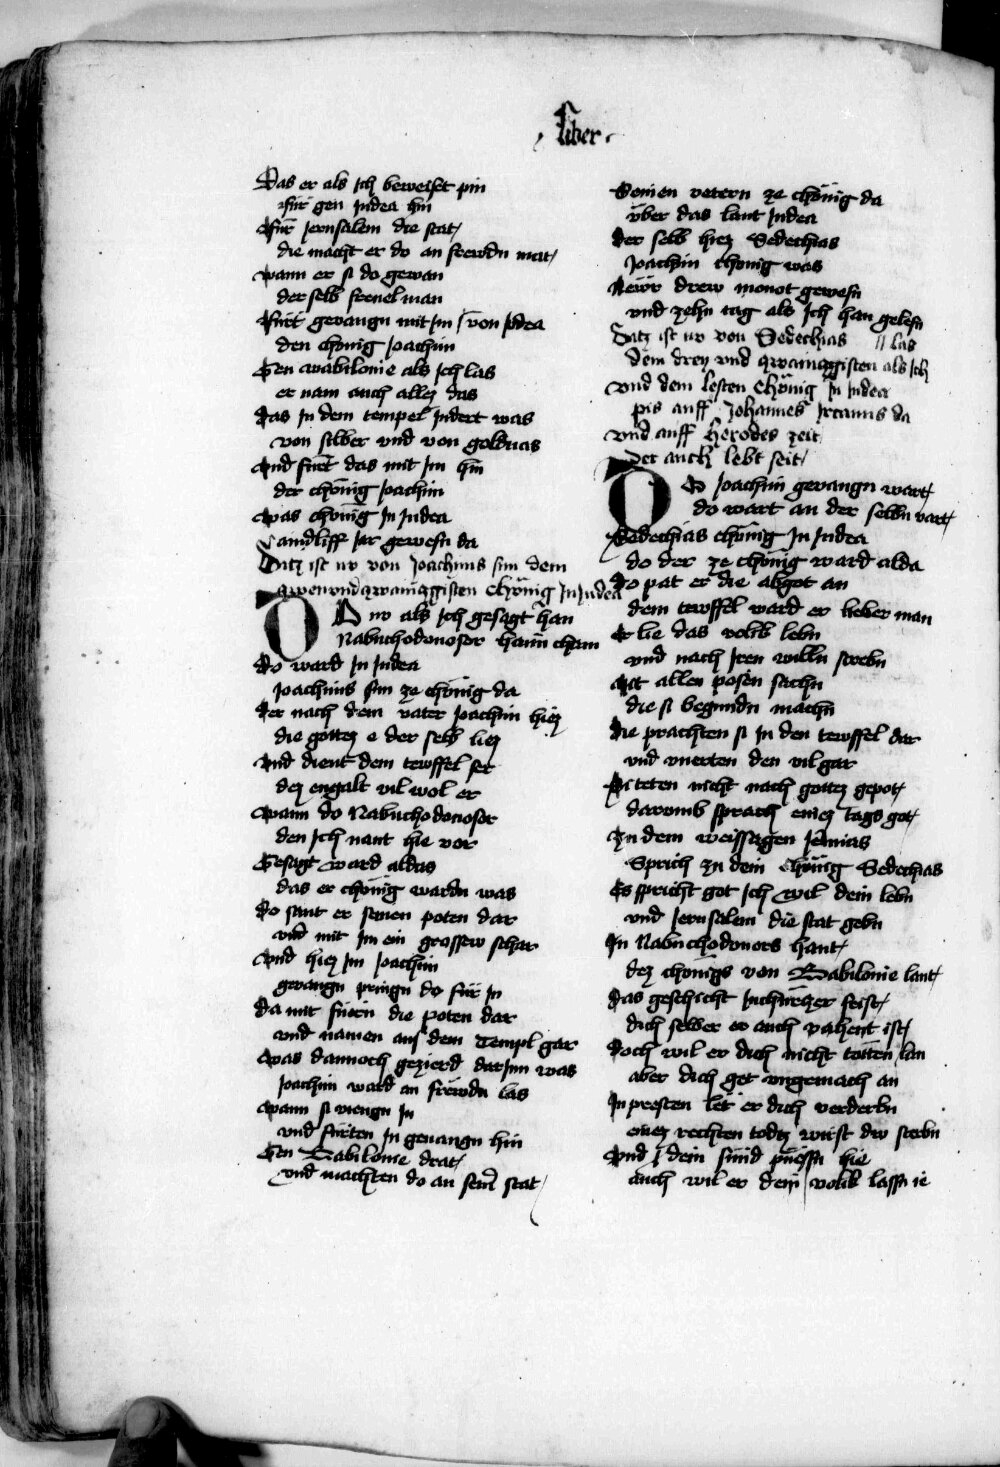 Liber
Das er als ich beweiset pin
für gen Judea hin
Für Jerusalem die stat
die macht er do an frewdn mat
wann er si do gewan
der selb frevel man
Fürt gevangn mit im von Judea
den chönig Joachim
Gen wabilonie als ich las
er nam auch allez das
das in dem tempel indert was
von silber und von gold was
Vnd fürt das mit im hin
der chönig Joachim
was chönig in Judea
aindliff jar gewesn da
Ditz ist nv von Joachims sun dem
zwenvndzwainczgisten Chönig in Judea
DO nv als ich gesagt han
Nabuchodonosor haim cham
do ward in Judea
Joachims sun ze chönig da
Der nach dem vater Joachim hiez
die gottez e der selb liez
Vnd dient dem tewffel ser
dez engalt vil wol er
wann do Nabuchodonosor
den ich nant hie vor
Gesagt ward aldas
das er chönig wardn was
do sant er seinen poten dar
vnd mit im ein grossew schar
vnd hiez im Joachim
gevangn pringn do für in
da mit fürn die poten dar
vnd namen aus dem Templ gar
was dannoch gezierd darinn was
Joachim ward an frewdn las
wann si viengn in
vnd fürten in gevangn hin
Gen Babilonie drat
vnd machten do an seinr stat
Seinen vetern ze chönig da
über das lant Judea
der selb hiez Sedechias
Joachin chönig was
Newr drew monot gewesn
vnd zehn tag als ich han gelesn
Ditz ist nv von Sedechias // las
dem drey vnd zwainczgisten als ich
vnd dem lesten Chönig in Judea
pis auff Johannes Ircanus da
vnd auff Herodes zeit
Der auch lebt seit
DO Joachim gevangn wart
do wart an der selbn vart
Sedechias chönig in Judea
do der ze chönig ward alda
do pat er die abgot an
dem tewffel ward er lieber man
Er lie das volk lebn
vnd nach iren willn strebn
Mit allen posen sachn
die si begundn machn
die prachten si in den tewffel dar
vnd vnerten den vil gar
Si teten nicht nach gottez gepot
darvmb sprach einez tags got
zu dem weissagen Jeremias
Sprich zu dem Chönig Sedechias
Es spricht got ich wil dein lebn
vnd Jerusalem die stat gebn
In Nabuchodonors hant
dez chönigs von Babilonie lant
das geschicht in churczer frist
dich selber er auch vahent ist
Doch wil er dich nicht totten lan
aber dich get vngemach an
In presten let er dich verderbn
einez rechten todz wirst dv sterbn
Vnd dein sünd püessn hie
auch wil er dem volk lassn ie